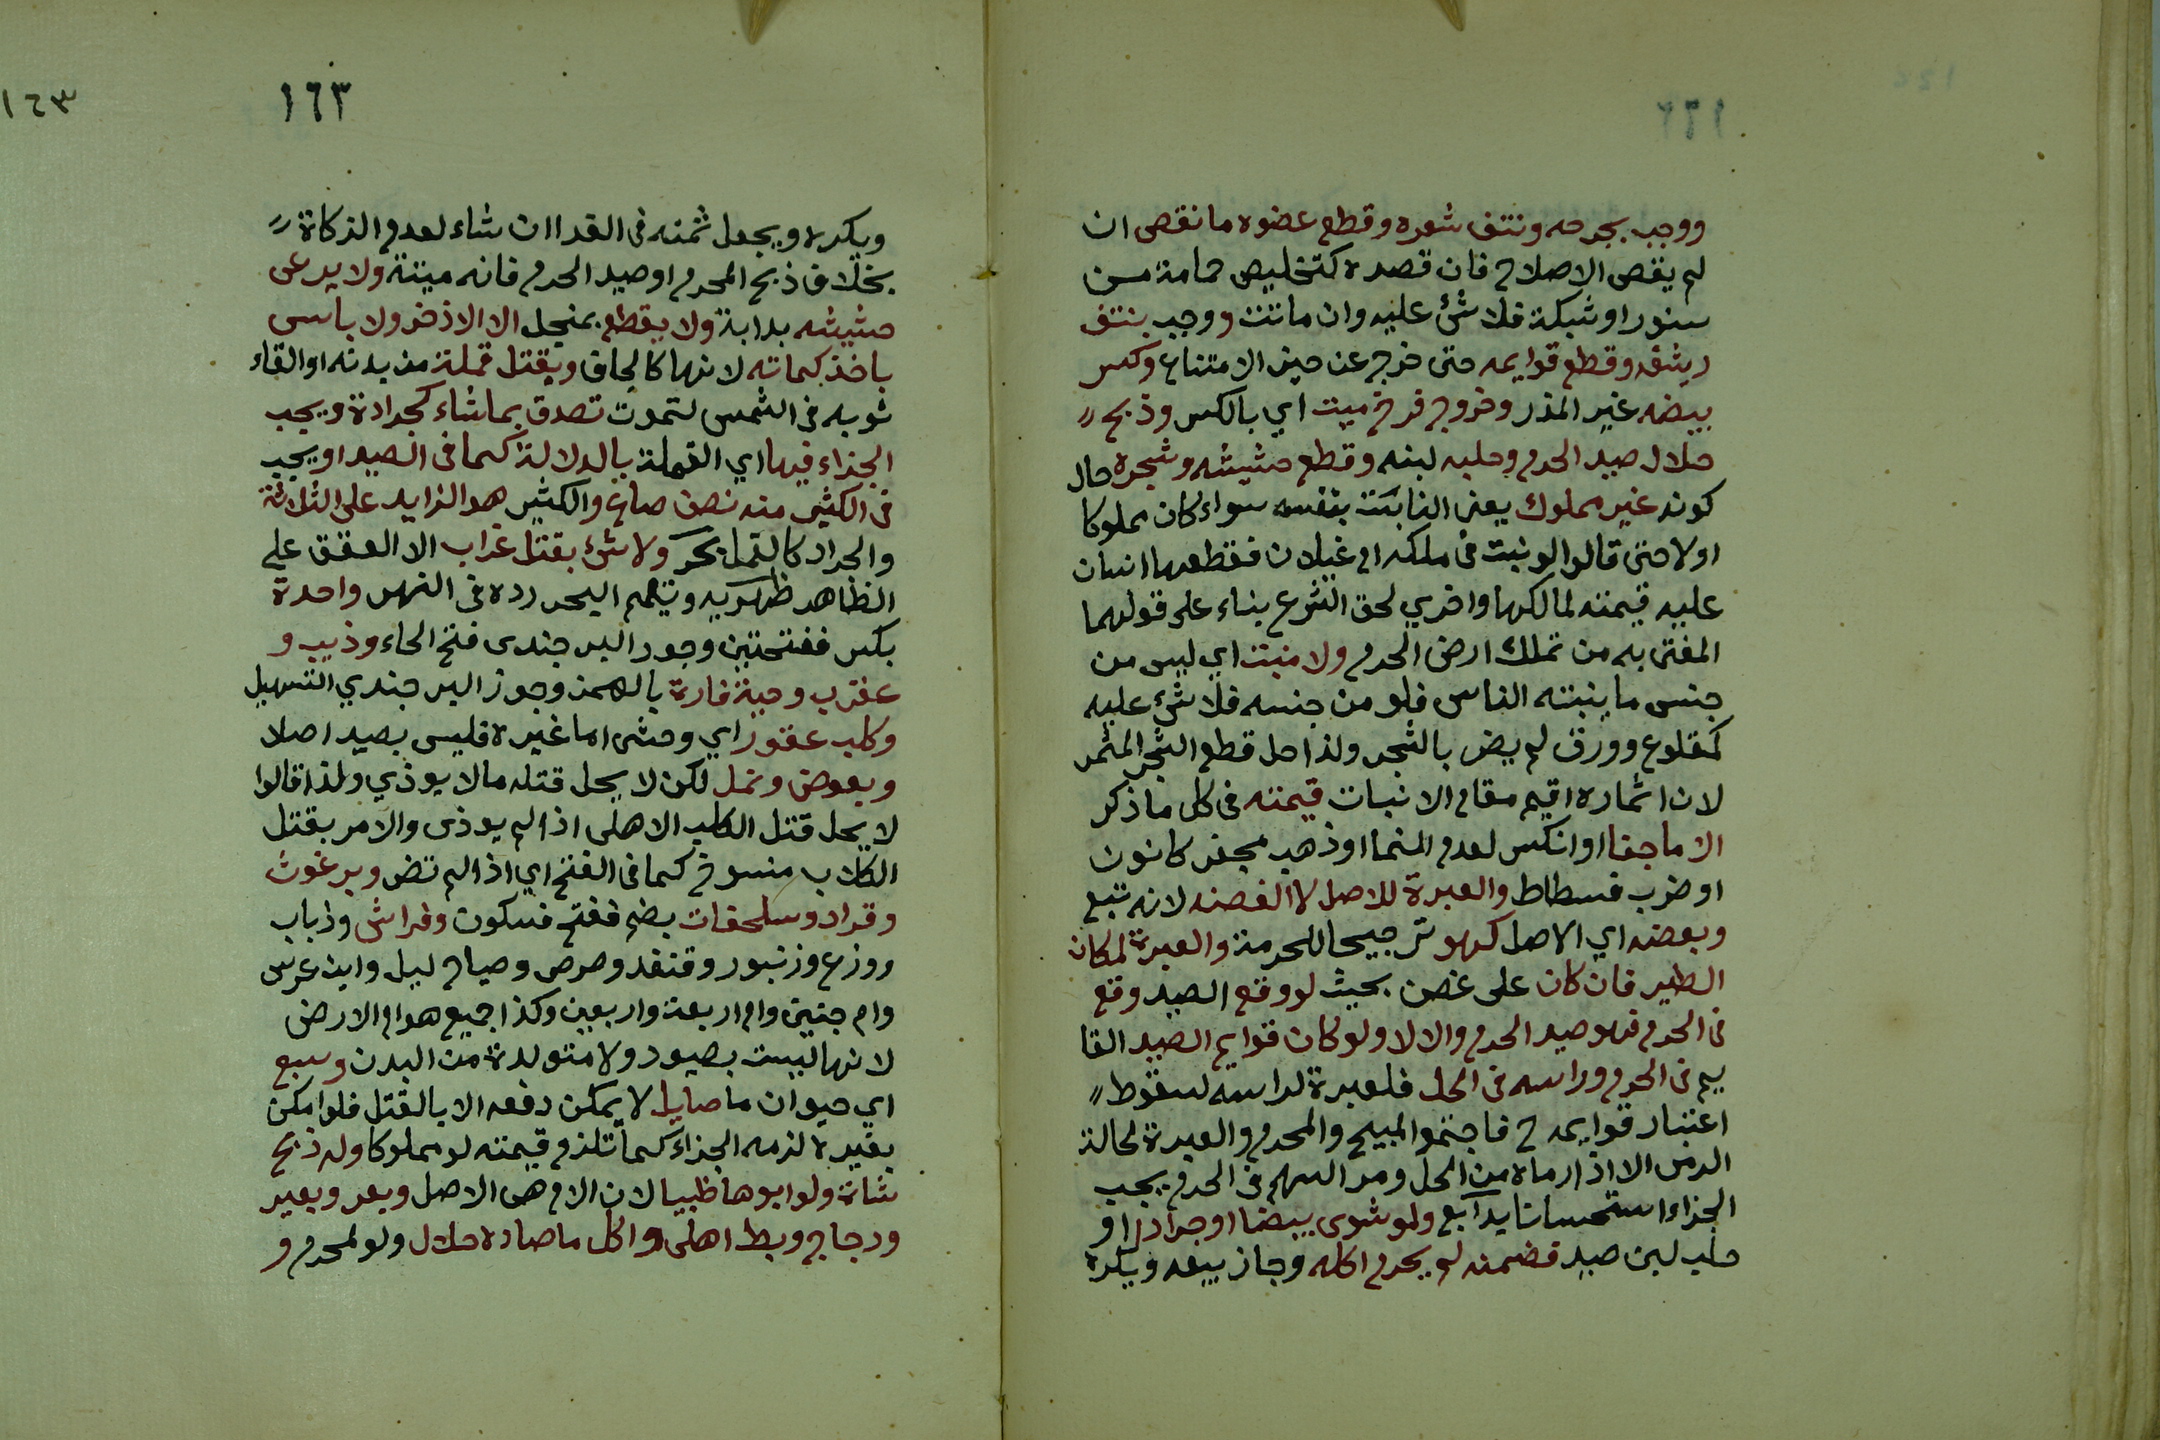 ووجب بجرحه ونتف شعره وقطع عضوه ما نقص ان
لم يقص الاصلاح فان قصده كتخليص حمامة من
سنورا وشبكة فلا شئ عليه وان ماتت ووجب بنتف
ريشه وقطع قوايمه حتى خرج عن حيز الامتناع وكسر
بيضه غير المذر وخروج فرخ ميت اي بالكسر وذبح
حلال صيد الحرم وحلبه لبنه وقطع حشيشه وشجره حال
كونه غير مملوك يعنى النابت بنفسه سواء كان مملوكا
اولا حتى قالوا لو نبت فى ملكه ام غيلان فقطعها انسان
عليه قيمته لمالكها واخري لحق الشرع بناء على قولهما
المفتى به من تملك ارض الحرم ولا منبت اي ليس من
جنس ما ينبته الناس فلو من جنسه فلا شئ عليه
كمقلوع وورق لم يضر بالشجر ولذا حل قطع الشجر المثمر
لان اثماره اقيم مقام الانبات قيمته فى كل ما ذكر
الا ما جفا او انكسر لعدم النما او ذهب بحفر كانون
او ضرب فسطاط والعبرة للاصل لا الغصنه لانه تبع
وبعضه اي الاصل كهو ترجيحا للحرمة والعبرة لمكان
الطير فان كان على غصن بحيث لو وقع الصيد وقع
فى الحرم فهو صيد الحرم والا لا ولو كان قوايم الصيد القا
يم فى الحرم وراسه فى الحل فلعبرة لراسه لسقوط
اعتبار قوايمه ح فاجتمو المبيح والمحرم والعبرة لحالة
الرمى الا اذا رماه من الحل ومر السهم فى الحرم يجب
الجزاء استحسانا بدآيع ولو شوى بيضا او جرادا او
حلب لبن صيد فضمنه لم يحرم اكله وجاز بيعه ويكره
١٦٣
١٦٣
ويكره ويجعل ثمنه فى الفدا ان شاء لعدم الذكاة
بخلاف ذبح المحرم او صيد الحرم فانه ميتة ولا يرعى
حشيشه بدابة ولا يقطع بمنجل الا الاذخر ولا باس
باخذ كماته لانها كالجاف وبقتل قملة من بدنه او القاء
ثوبه فى الشمس لتموت تصدق بما شاء كجرادة ويجب
الجزاء فيها اي القملة بالدلالة كما فى الصيد او يجب
فى الكثير منه نصف صاع والكثير هو الزايد على الثلاثة
والجراد كالقمل بحر ولا شئ بقتل غراب الا العقق على
الظاهر ظهيريه وتعميم البحر رده فى النهر واحدة
بكسر ففتحتين وجوز البرجندى فتح الحاء وذيب و
عقرب وحية فارة بالهمز وجوز البرجندي التسهيل
وكلب عقور اي وحشى اما غيره فليس بصيد اصلا
وبعوض ونمل لكن لا يحل قتله ما لا يوذي ولذا قالوا
لا يحل قتل الكلب الاهلى اذا لم يوذى والامر بقتل
الكلاب منسوخ كما فى الفتح اي اذا لم تضر وبرغوث
وقراد وسلحفات بضم ففتح فسكون وفراش وذباب
ووزغ وزنبور وقنفد وصرصر وصياح ليل وابن عرس
وام حبين وام اربعة واربعين وكذا جميع هوام الارض
لانها ليست بصيود ولا متولدة من البدن وسبع
اي حيوان ما صايل لا يمكن دفعه الا بالقتل فلو امكن
بغيره لزمه الجزاء كما تلزم قيمته لو مملوكا وله ذبح
شاة ولو ابوها ظبيا لان الام هى الاصل وبعر وبعير
ودجاج وبط اهلى واكل ما صاده حلال ولو لمحرم و